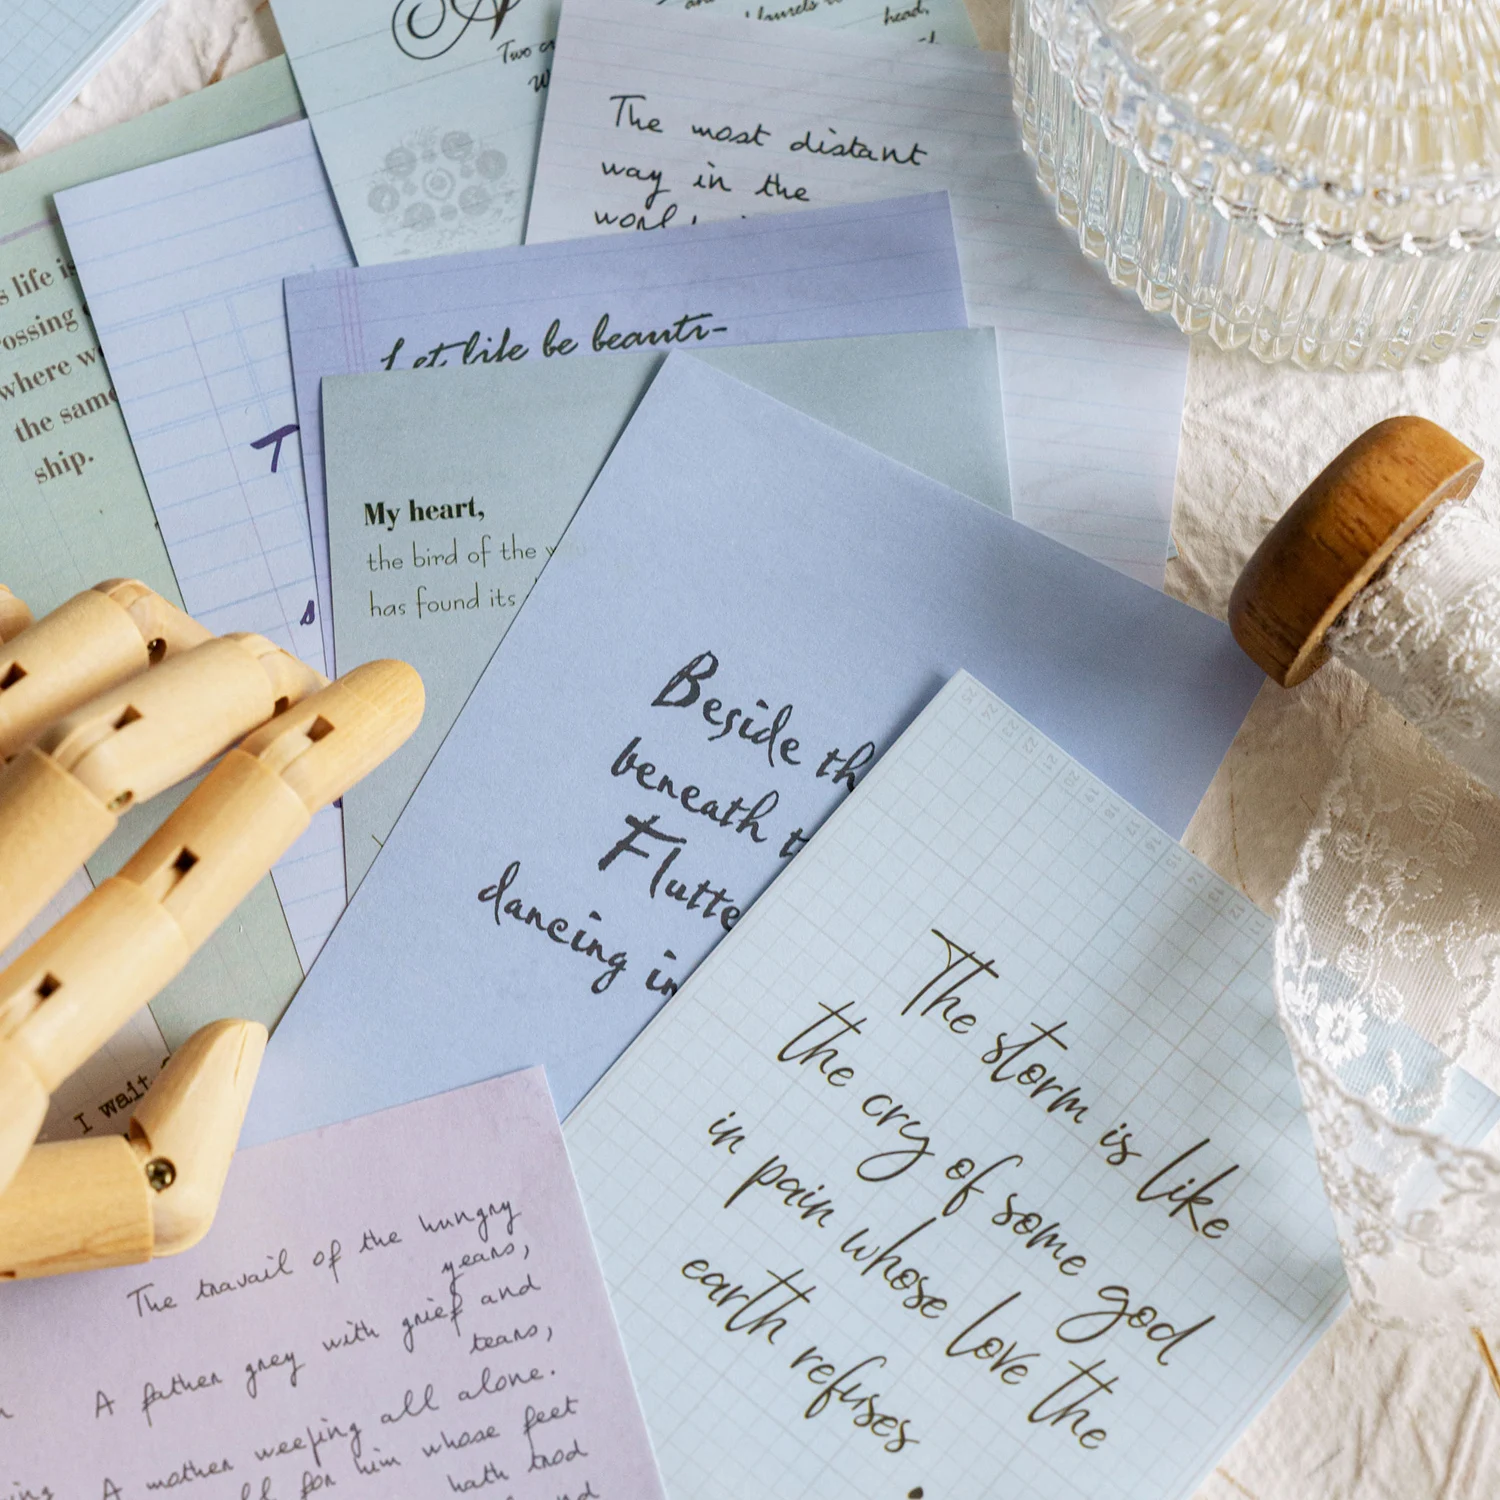 Two
head,
The most distant
way in the
s life is
rossing
where w
the same
ship.
Let life be beauti-
T
My heart,
the bird of the
has found its
s
Beside th
beneath t
Flutte
dancing in
The storm is like
the cry of some god
in pain whose love the
earth refuses
I wait
The travail of the hungry
years,
A father grey with grief and
tears,
A mother weeping all alone.
for him whose feet
hath trod